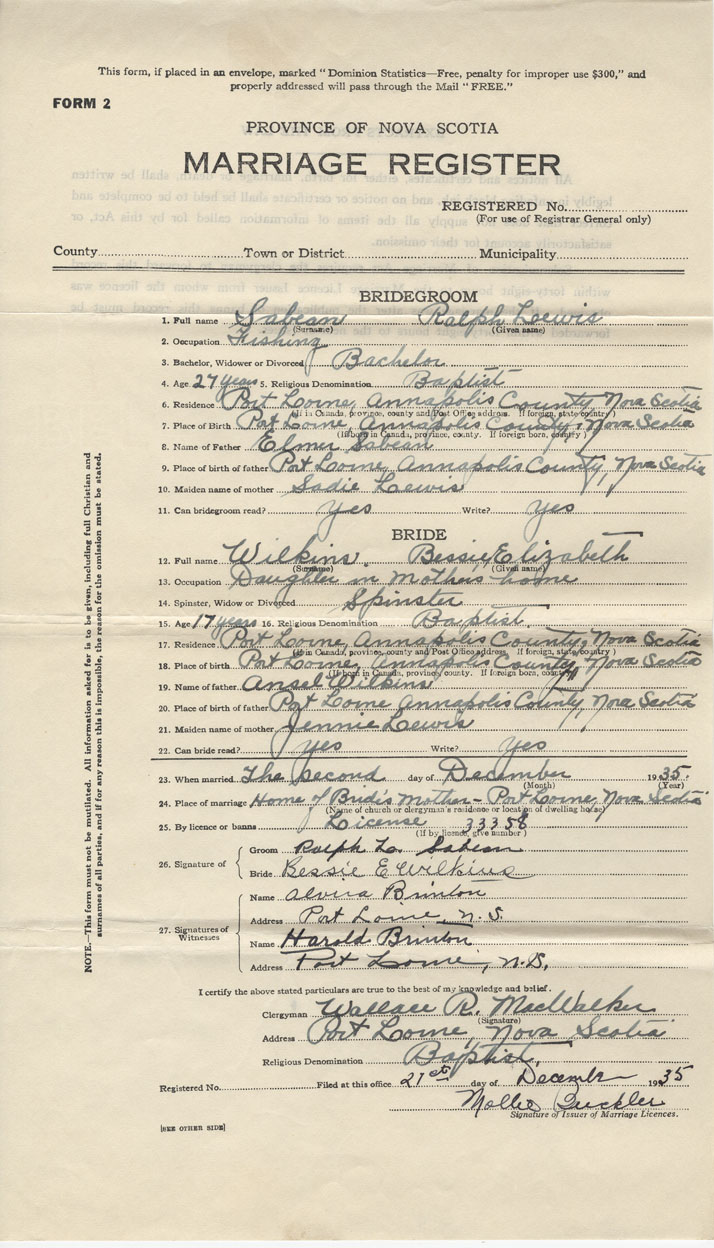 This form, if placed in an envelope, marked "Dominion Statistics—Free, penalty for improper use $300," and
properly addressed will pass through the Mail "FREE."
FORM 2
PROVINCE OF NOVA SCOTIA
MARRIAGE REGISTER
REGISTERED No.
(For use of Registrar General only)
County Town or District Municipality
BRIDEGROOM
1. Full name Sabean Ralph Lewis
(Surname) (Given name)
2. Occupation Fishing
3. Bachelor, Widower or Divorced Bachelor
4. Age 27 years 5. Religious Denomination Baptist
6. Residence Port Lorne, Annapolis County, Nova Scotia
(If in Canada, province, county and Post Office address. If foreign, state country)
7. Place of Birth Port Lorne, Annapolis County, Nova Scotia
(If born in Canada, province, county. If foreign born, country)
8. Name of Father Elmer Sabean
9. Place of birth of father Port Lorne, Annapolis County, Nova Scotia
10. Maiden name of mother Sadie Lewis
11. Can bridegroom read? yes Write? yes
BRIDE
12. Full name Wilkins, Bessie Elizabeth
(Surname) (Given name)
13. Occupation Daughter in mothers home
14. Spinster, Widow or Divorced Spinster
15. Age 17 years 16. Religious Denomination Baptist.
17. Residence Port Lorne, Annapolis County, Nova Scotia
(If in Canada, province, county and Post Office address. If foreign, state country)
18. Place of birth Port Lorne, Annapolis County, Nova Scotia
(If born in Canada, province, county. If foreign born, country)
19. Name of father Ansel Wilkins
20. Place of birth of father Port Lorne Annapolis County, Nova Scotia
21. Maiden name of mother Jennie Lewis
22. Can bride read? yes Write? yes
23. When married The second day of December 1935.
(Month) (Year)
24. Place of marriage Home of Bride's mother - Port Lorne, Nova Scotia
(Name of church or clergyman's residence or location of dwelling house)
25. By licence or banns License 33358
(If by licence, give number)
26. Signature of
Groom Ralph L. Sabean
Bride Bessie E Wilkins
27. Signatures of Witnesses
Name Alvira Brinton
Address Port Lorne, N.S.
Name Harold Brinton
Address Port Lorne, N.S.
I certify the above stated particulars are true to the best of my knowledge and belief.
Clergyman Wallace R. MacWalker
(Signature)
Address Port Lorne, Nova Scotia
Religious Denomination Baptist.
Registered No. Filed at this office 21st day of December 1935
Mollie Buckler
Signature of Issuer of Marriage Licences.
[SEE OTHER SIDE]
NOTE.—This form must not be mutilated. All information asked for is to be given, including full Christian and
surnames of all parties, and if for any reason this is impossible, the reason for the omission must be stated.